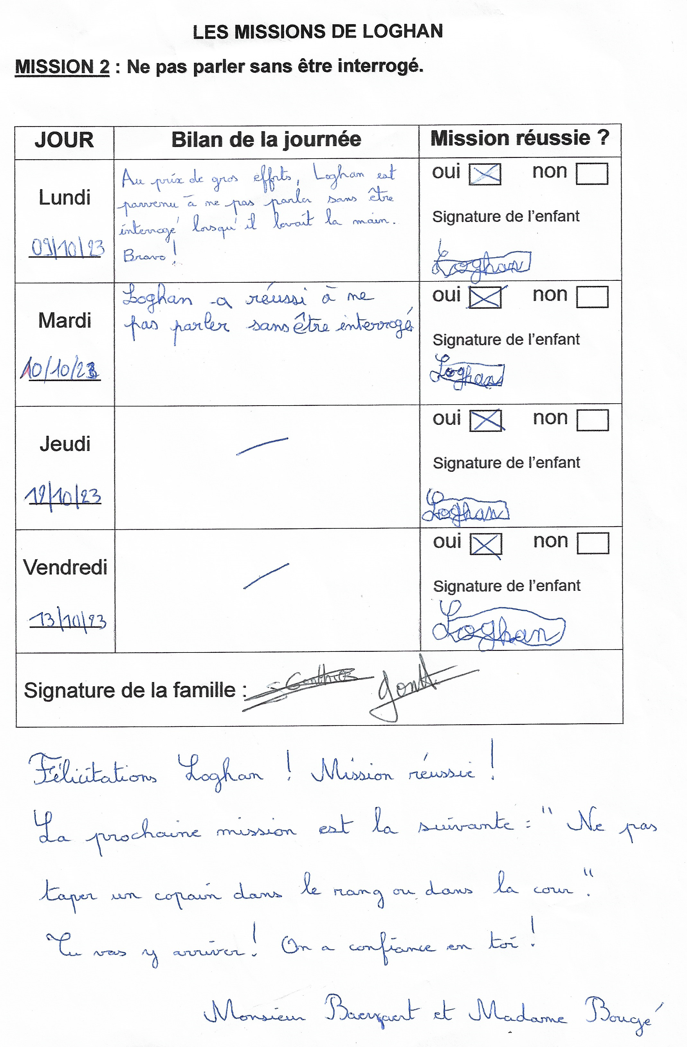 LES MISSIONS DE LOGHAN
MISSION 2 : Ne pas parler sans être interrogé.
JOUR Bilan de la journée Mission réussie ?
Lundi
09/10/23
Au prix de gros efforts, Loghan est
parvenu à ne pas parler sans être
interrogé lorsqu'il levait la main.
Bravo !
oui non
Signature de l'enfant
Loghan
Mardi
10/10/23
Loghan a réussi à ne
pas parler sans être interrogé
oui non
Signature de l'enfant
Loghan
Jeudi
12/10/23
oui non
Signature de l'enfant
Loghan
Vendredi
13/10/23
oui non
Signature de l'enfant
Loghan
Signature de la famille :
Félicitations Loghan ! Mission réussie !
La prochaine mission est la suivante : " Ne pas
taper un copain dans le rang ou dans la cour ".
Tu vas y arriver ! On a confiance en toi !
Monsieur et Madame Bougé